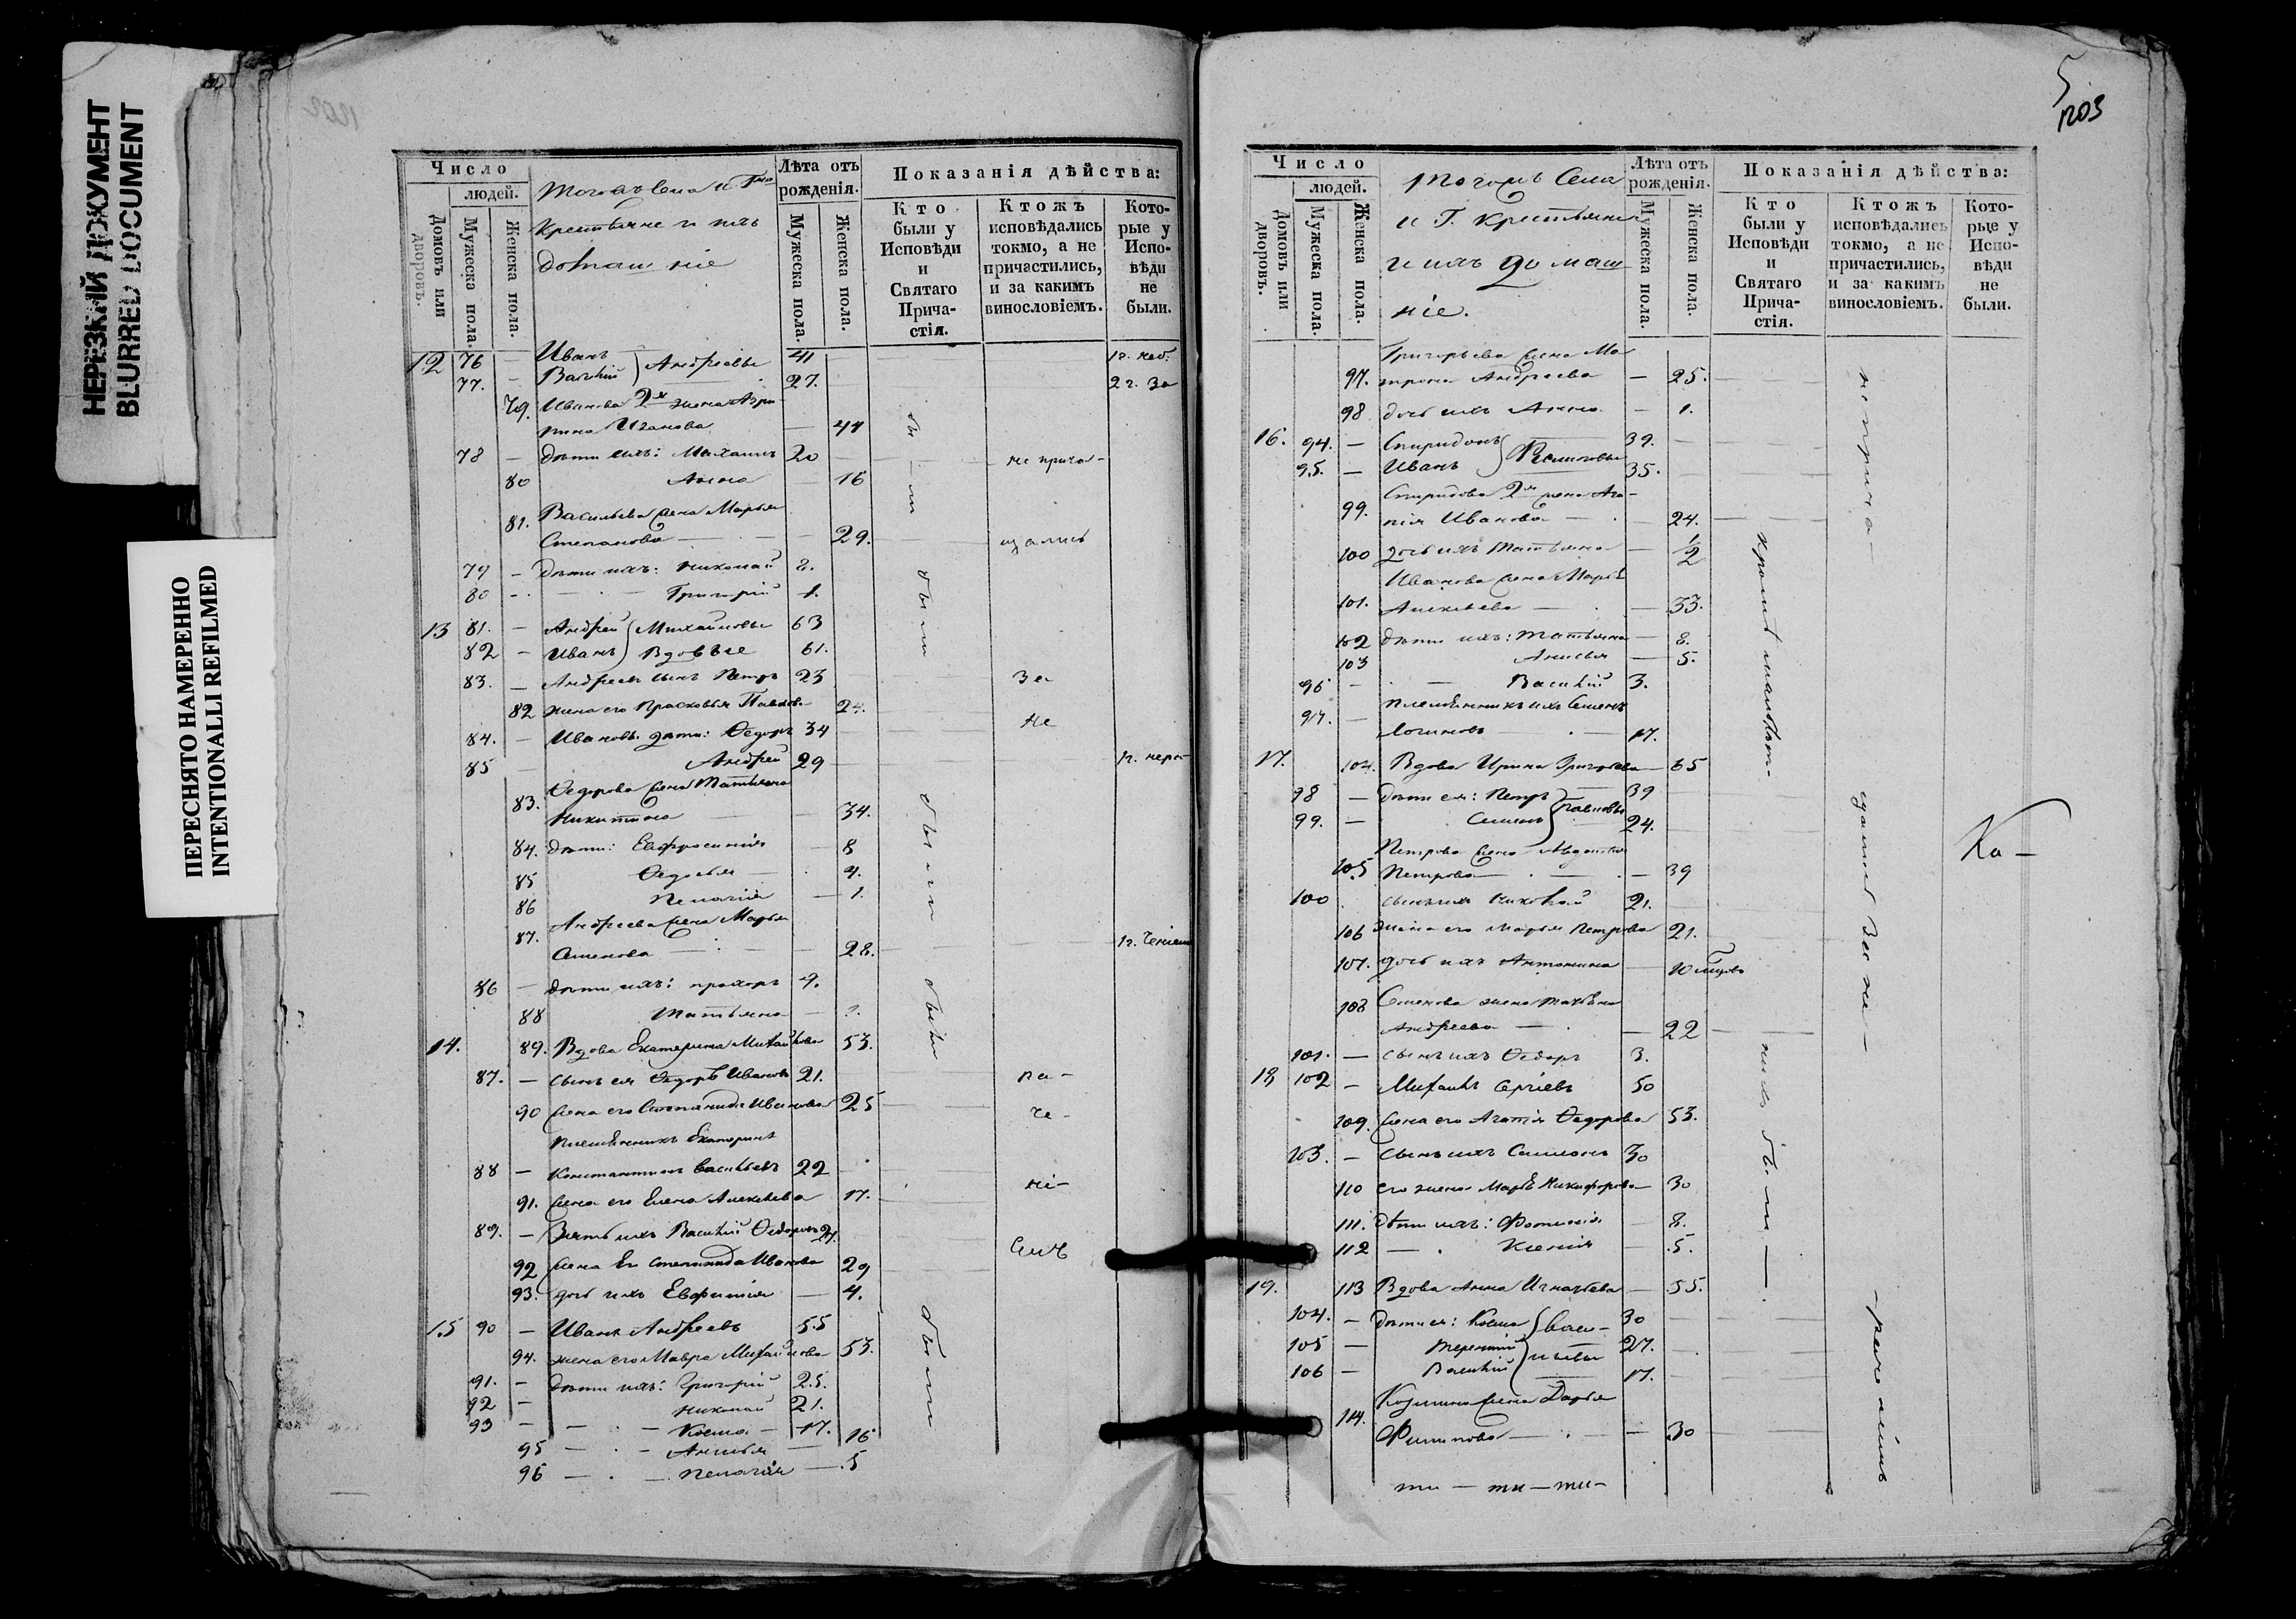 НЕРЕЗКИЙ ДОКУМЕНТ
BLURRED DOCUMENT
ПЕРЕСНЯТО НАМЕРЕННО
INTENTIONALLI REFILMED
Число
людей.
Домовъ или дворовъ.
Мужеска пола.
Женска пола.
Тогожъ Села и
крестьяне и ихъ
домашніе
Лѣта отъ рожденія.
Мужеска пола.
Женска пола.
Показанія дѣйства:
Кто были у Исповѣди и Святаго Прича-стія.
Ктожъ исповѣдались токмо, а не причастились, и за какимъ винословіемъ.
Кото-рые у Испо-вѣди не были.
12 76 — Иванъ } Андреевы 41
77. — Василій 27. 2 г. За
79. Иванова 2я жена
Иванова — 44
78 — дѣти ихъ: Михаилъ 20
80 Анна — 16
81. Васильева жена Марья
Степанова — 29.
79 — дѣти ихъ: Николай 8.
80 — Григорій 1.
13 81. — Андрей } Михайловы 63
82 — Иванъ } Вдовые 61.
83. — Андреевъ сынъ Петръ 23
82 жена его Прасковья Павлова 24.
84. — Ивановы дѣти: Федоръ 34
85 Андрей 29
83. Федорова жена Татьяна
Никитина — 34.
84. дѣти: Евфросинія — 8
85 Федосья — 4.
86 Пелагія — 1.
87. Андреева жена Марья
Семенова — 28.
86 — дѣти ихъ: Прохоръ 4.
88 Татьяна —
14. 89. Вдова Екатерина Михайлова 53.
87. — сынъ ея Федоръ Ивановъ 21.
90 жена его Степанида Иванова 25
племянникъ Екатерины
88 — Константинъ Васильевъ 22
91. жена его Елена Алексѣева 17.
89. — Зять ихъ Василій Федоровъ
92 жена его Степанида Иванова 29
93. дочь ихъ Евфимія — 4.
15 90 — Иванъ Андреевъ 55
94. жена его Мавра Михайлова 53.
91. — дѣти ихъ: Григорій 25.
92 — Николай 21.
93 — Косма — 17.
95 — Анисья — 16
96 — Пелагія — 5
были
были
были
были
не прича-
щались
За
не
ра-
че-
ні-
емъ
5
1203
Число
людей.
Домовъ или дворовъ.
Мужеска пола.
Женска пола.
Тогожъ Села
и Г. крестьяне
и ихъ домаш
ніе.
Лѣта отъ рожденія.
Мужеска пола.
Женска пола.
Показанія дѣйства:
Кто были у Исповѣди и Святаго Прича-стія.
Ктожъ исповѣдались токмо, а не причастились, и за какимъ винословіемъ.
Кото-рые у Испо-вѣди не были.
Григорьева жена Ма
97. трона Андреева — 25.
98 дочь ихъ Анна — 1.
16. 94. — Спиридонъ } 39.
95. — Иванъ 35.
99. Спиридонова 2я жена Ага-
пія Иванова — 24.
100 дочь ихъ Татьяна — 1/2
Иванова жена Марья
101. Алексѣева — 33.
102 дѣти ихъ: Татьяна — 8.
103 Анисья — 5.
96 — Василій 3.
97. — племянникъ ихъ Семенъ
Логиновъ — 17.
17. 104. Вдова Ирина Григорьева — 65
98 — дѣти ея: Петръ } Павловы 39
99. — Семенъ 24.
Петрова жена Авдотья
105 Петрова — 39
100 сынъ ихъ Николай 21.
106 жена его Марья Петрова 21.
107. дочь ихъ Антонина — 10
108 Семенова жена Татьяна
Андреева — 22
101. — сынъ ихъ Федоръ 3.
18 102 — Михаилъ Сергіевъ 50
109. жена его Агафія Федорова 53.
103. — сынъ ихъ Симеонъ 30
110 его жена Марья Никифорова — 30
111. дѣти ихъ: Фотинія — 8.
112 — Ксенія — 5.
19. 113 Вдова Анна Игнатьева — 55.
104. — дѣти ея: Косма } Васи- 30
105 — Терентій } льевы 27.
106 — Василій 17.
Козмина жена Дарья
114. Филипова — 30
кромѣ малолѣт-
нихъ были —
не прича-
щались За не-
-раченіемъ
Ка-